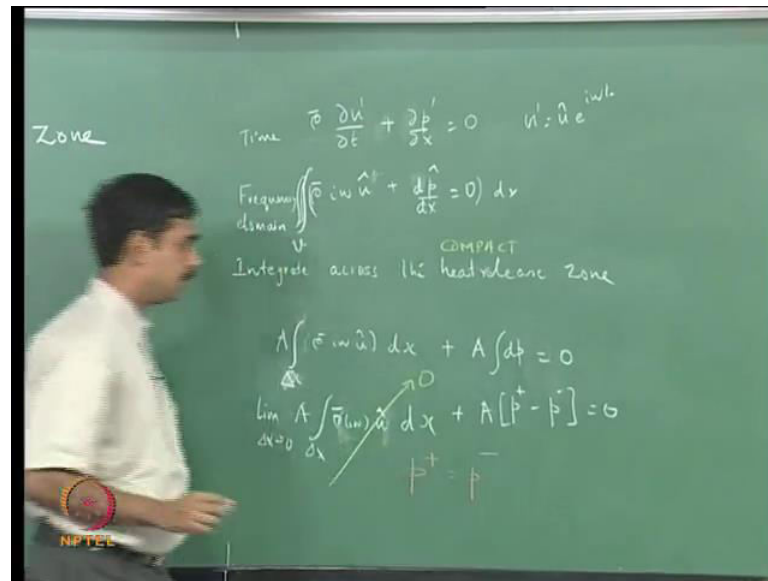 Zone
Time ρ̄ ∂u'/∂t + ∂p'/∂x = 0 u' = û e^{iωt}
Frequency domain ∫∫∫_V (ρ̄ iω û + dp̂/dx = 0) dx
COMPACT
Integrate across the heat release zone
A ∫_{Δx} (ρ̄ iω û) dx + A ∫ dp = 0
0
Lim Δx=0 A ∫_{Δx} ρ̄ (iω) û dx + A [p⁺ - p⁻] = 0
p⁺ = p⁻
NPTEL